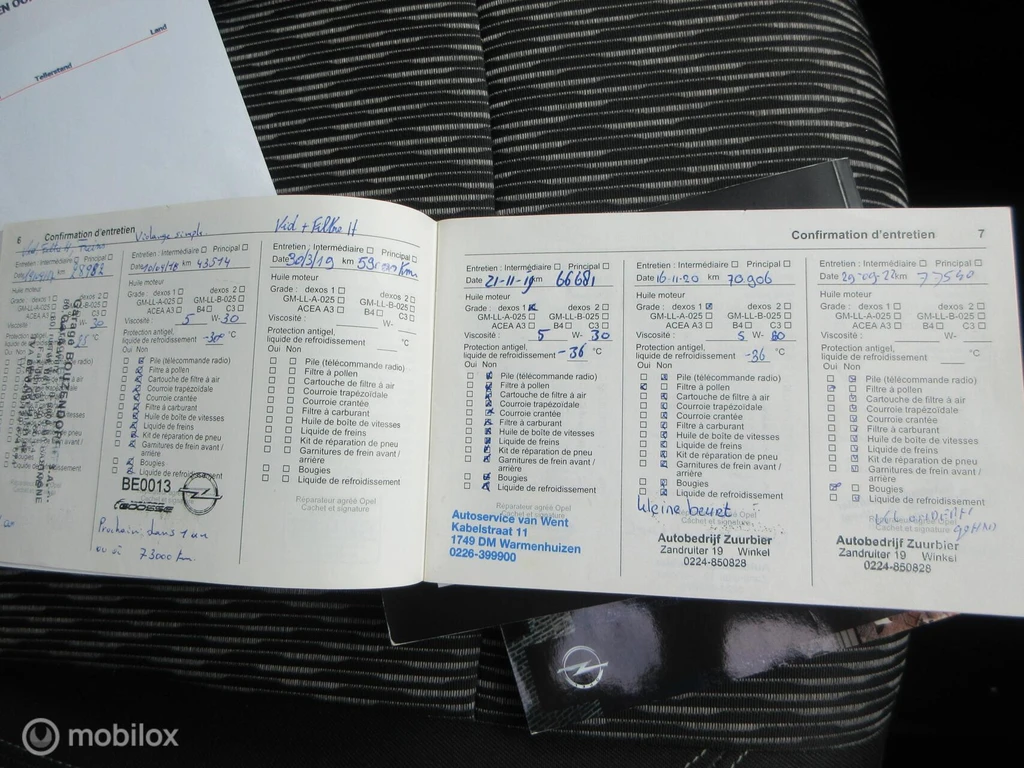 Land
Tellerstand
6 Confirmation d'entretien
Vidange simple
Vid + Filtre H
Entretien : Intermédiaire Principal
Date 18983
Grade : dexos 1 dexos 2
GM-LL-A-025 GM-LL-B-025
ACEA A3 B4 C3
Viscosité W- 30
Oui Non
Entretien : Intermédiaire Principal
Date 10/04/18 km 43514
Huile moteur
Grade : dexos 1 dexos 2
GM-LL-A-025 GM-LL-B-025
ACEA A3 B4 C3
Viscosité : 5 W- 30
Protection antigel,
liquide de refroidissement -30° °C
Oui Non
Pile (télécommande radio)
Filtre à pollen
Cartouche de filtre à air
Courroie trapézoïdale
Courroie crantée
Filtre à carburant
Huile de boîte de vitesses
Liquide de freins
Kit de réparation de pneu
Garnitures de frein avant /
arrière
Bougies
Liquide de refroidissement
BE0013
Prochain dans 1 an
ou à 73000 km
Entretien : Intermédiaire Principal
Date 30/3/19 km
Huile moteur
Grade : dexos 1 dexos 2
GM-LL-A-025 GM-LL-B-025
ACEA A3 B4 C3
Viscosité : W-
Protection antigel,
liquide de refroidissement °C
Oui Non
Pile (télécommande radio)
Filtre à pollen
Cartouche de filtre à air
Courroie trapézoïdale
Courroie crantée
Filtre à carburant
Huile de boîte de vitesses
Liquide de freins
Kit de réparation de pneu
Garnitures de frein avant /
arrière
Bougies
Liquide de refroidissement
Réparateur agréé Opel
Cachet et signature
Confirmation d'entretien 7
Entretien : Intermédiaire Principal
Date 21-11-19 km 66681
Huile moteur
Grade : dexos 1 dexos 2
GM-LL-A-025 GM-LL-B-025
ACEA A3 B4 C3
Viscosité : 5 W- 30
Protection antigel,
liquide de refroidissement -36 °C
Oui Non
Pile (télécommande radio)
Filtre à pollen
Cartouche de filtre à air
Courroie trapézoïdale
Courroie crantée
Filtre à carburant
Huile de boîte de vitesses
Liquide de freins
Kit de réparation de pneu
Garnitures de frein avant /
arrière
Bougies
Liquide de refroidissement
Réparateur agréé Opel
Cachet et signature
Autoservice van Went
Kabelstraat 11
1749 DM Warmenhuizen
0226-399900
Entretien : Intermédiaire Principal
Date 16-11-20 km 70906
Huile moteur
Grade : dexos 1 dexos 2
GM-LL-A-025 GM-LL-B-025
ACEA A3 B4 C3
Viscosité : 5 W-
Protection antigel,
liquide de refroidissement -36 °C
Oui Non
Pile (télécommande radio)
Filtre à pollen
Cartouche de filtre à air
Courroie trapézoïdale
Courroie crantée
Filtre à carburant
Huile de boîte de vitesses
Liquide de freins
Kit de réparation de pneu
Garnitures de frein avant /
arrière
Bougies
Liquide de refroidissement
kleine beurt
Cachet et signature
Autobedrijf Zuurbier
Zandruiter 19 Winkel
0224-850828
Entretien : Intermédiaire Principal
Date 29-09-22 km 77540
Huile moteur
Grade : dexos 1 dexos 2
GM-LL-A-025 GM-LL-B-025
ACEA A3 B4 C3
Viscosité : W-
Protection antigel,
liquide de refroidissement °C
Oui Non
Pile (télécommande radio)
Filtre à pollen
Cartouche de filtre à air
Courroie trapézoïdale
Courroie crantée
Filtre à carburant
Huile de boîte de vitesses
Liquide de freins
Kit de réparation de pneu
Garnitures de frein avant /
arrière
Bougies
Liquide de refroidissement
Cachet et signature
Autobedrijf Zuurbier
Zandruiter 19 Winkel
0224-850828
mobilox